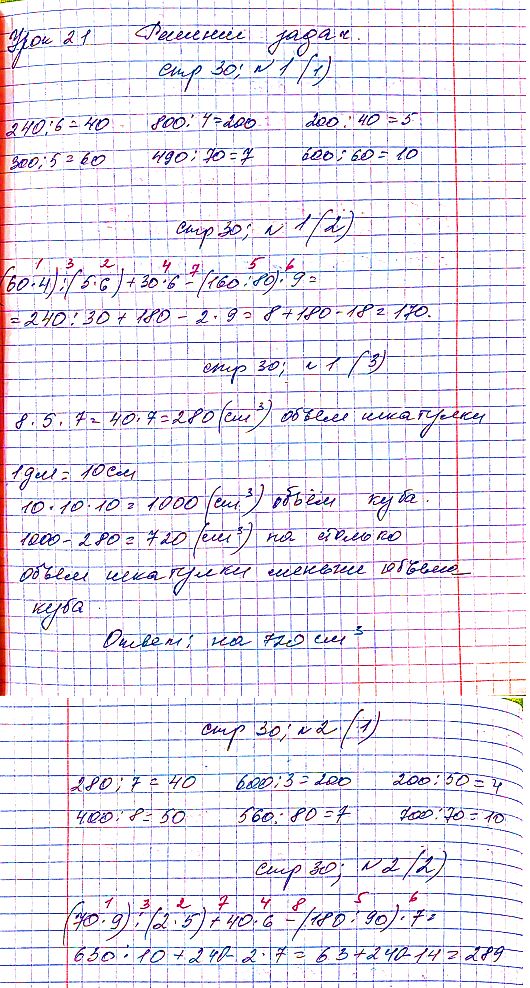 Урок 21 Решение задач.
стр 30; №1 (1)
240:6=40 800:4=200 200:40=5
300:5=60 490:70=7 600:60=10
стр 30; №1 (2)
1 3 2 4 7 5 6
(60·4):(5·6)+30·6-(160:80)·9=
=240:30+180-2·9=8+180-18=170.
стр 30; №1 (3)
8·5·7=40·7=280(см³) объём шкатулки
1дм=10см
10·10·10=1000(см³) объём куба.
1000-280=720(см³) на столько
объём шкатулки меньше объёма
куба.
Ответ: на 720 см³
стр 30; №2 (1)
280:7=40 600:3=200 200:50=4
400:8=50 560:80=7 700:70=10
стр 30; №2 (2)
1 3 2 7 4 8 5 6
(70·9):(2·5)+40·6-(180:90)·7=
630:10+240-2·7=63+240-14=289